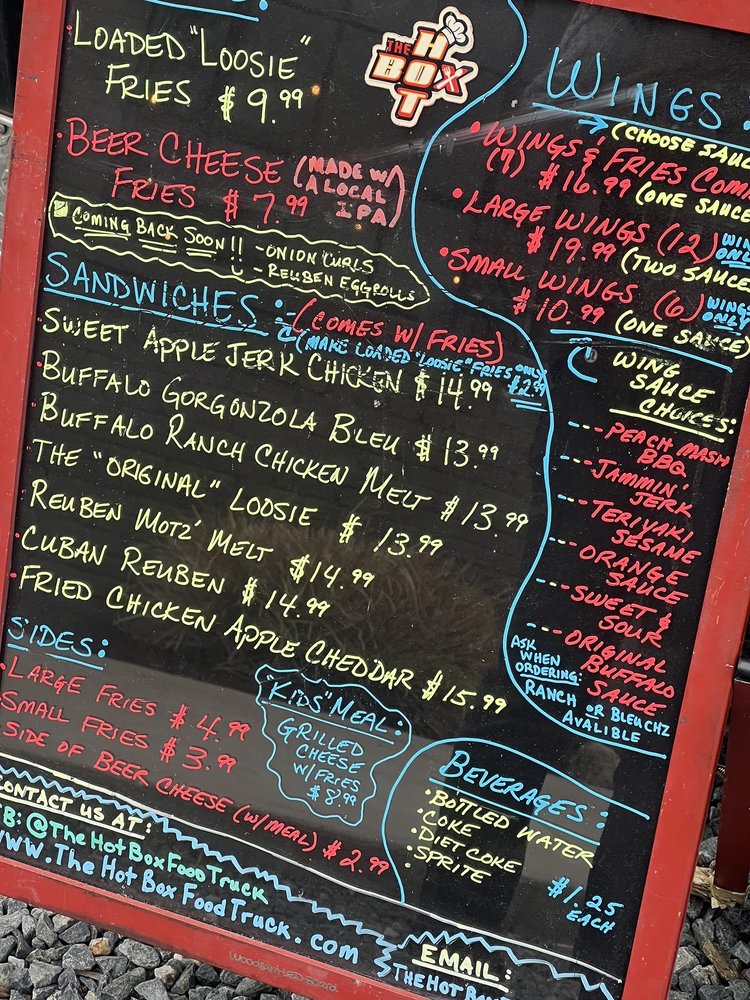 LOADED "LOOSIE"
FRIES $9.99
THE HOT BOX
• BEER CHEESE (MADE W/
A LOCAL
IPA)
FRIES $7.99
COMING BACK SOON!! - ONION CURLS
- REUBEN EGGROLLS
SANDWICHES:- (COMES W/ FRIES)
(MAKE LOADED "LOOSIE" FRIES ONLY
$2.99
• SWEET APPLE JERK CHICKEN $14.99
• BUFFALO GORGONZOLA BLEU $13.99
• BUFFALO RANCH CHICKEN MELT $13.99
• THE "ORIGINAL" LOOSIE $13.99
• REUBEN MOTZ' MELT $14.99
• CUBAN REUBEN $14.99
• FRIED CHICKEN APPLE CHEDDAR $15.99
SIDES:
• LARGE FRIES $4.99
• SMALL FRIES $3.99
• SIDE OF BEER CHEESE (W/MEAL) $2.99
"KIDS" MEAL:
GRILLED
CHEESE
W/FRIES
$8.99
WINGS
(CHOOSE SAUC
• WINGS & FRIES COM
(7) $16.99 (ONE SAUCE)
• LARGE WINGS (12) WIN
ONLY
$19.99 (TWO SAUCE
• SMALL WINGS (6) WINGS
ONLY
$10.99 (ONE SAUCE)
WING
SAUCE
CHOICES:
--- PEACH MASH
BBQ
--- JAMMIN'
JERK
--- TERIYAKI
SESAME
--- ORANGE
SAUCE
--- SWEET &
SOUR
--- ORIGINAL
BUFFALO
SAUCE
ASK
WHEN
ORDERING:
RANCH OR BLEU CHZ
AVALIBLE
BEVERAGES:
• BOTTLED WATER
• COKE
• DIET COKE
• SPRITE
$1.25
EACH
CONTACT US AT:
FB: @THEHOTBOXFOODTRUCK
WWW.THEHOTBOXFOODTRUCK.COM
EMAIL:
THEHOTBOX